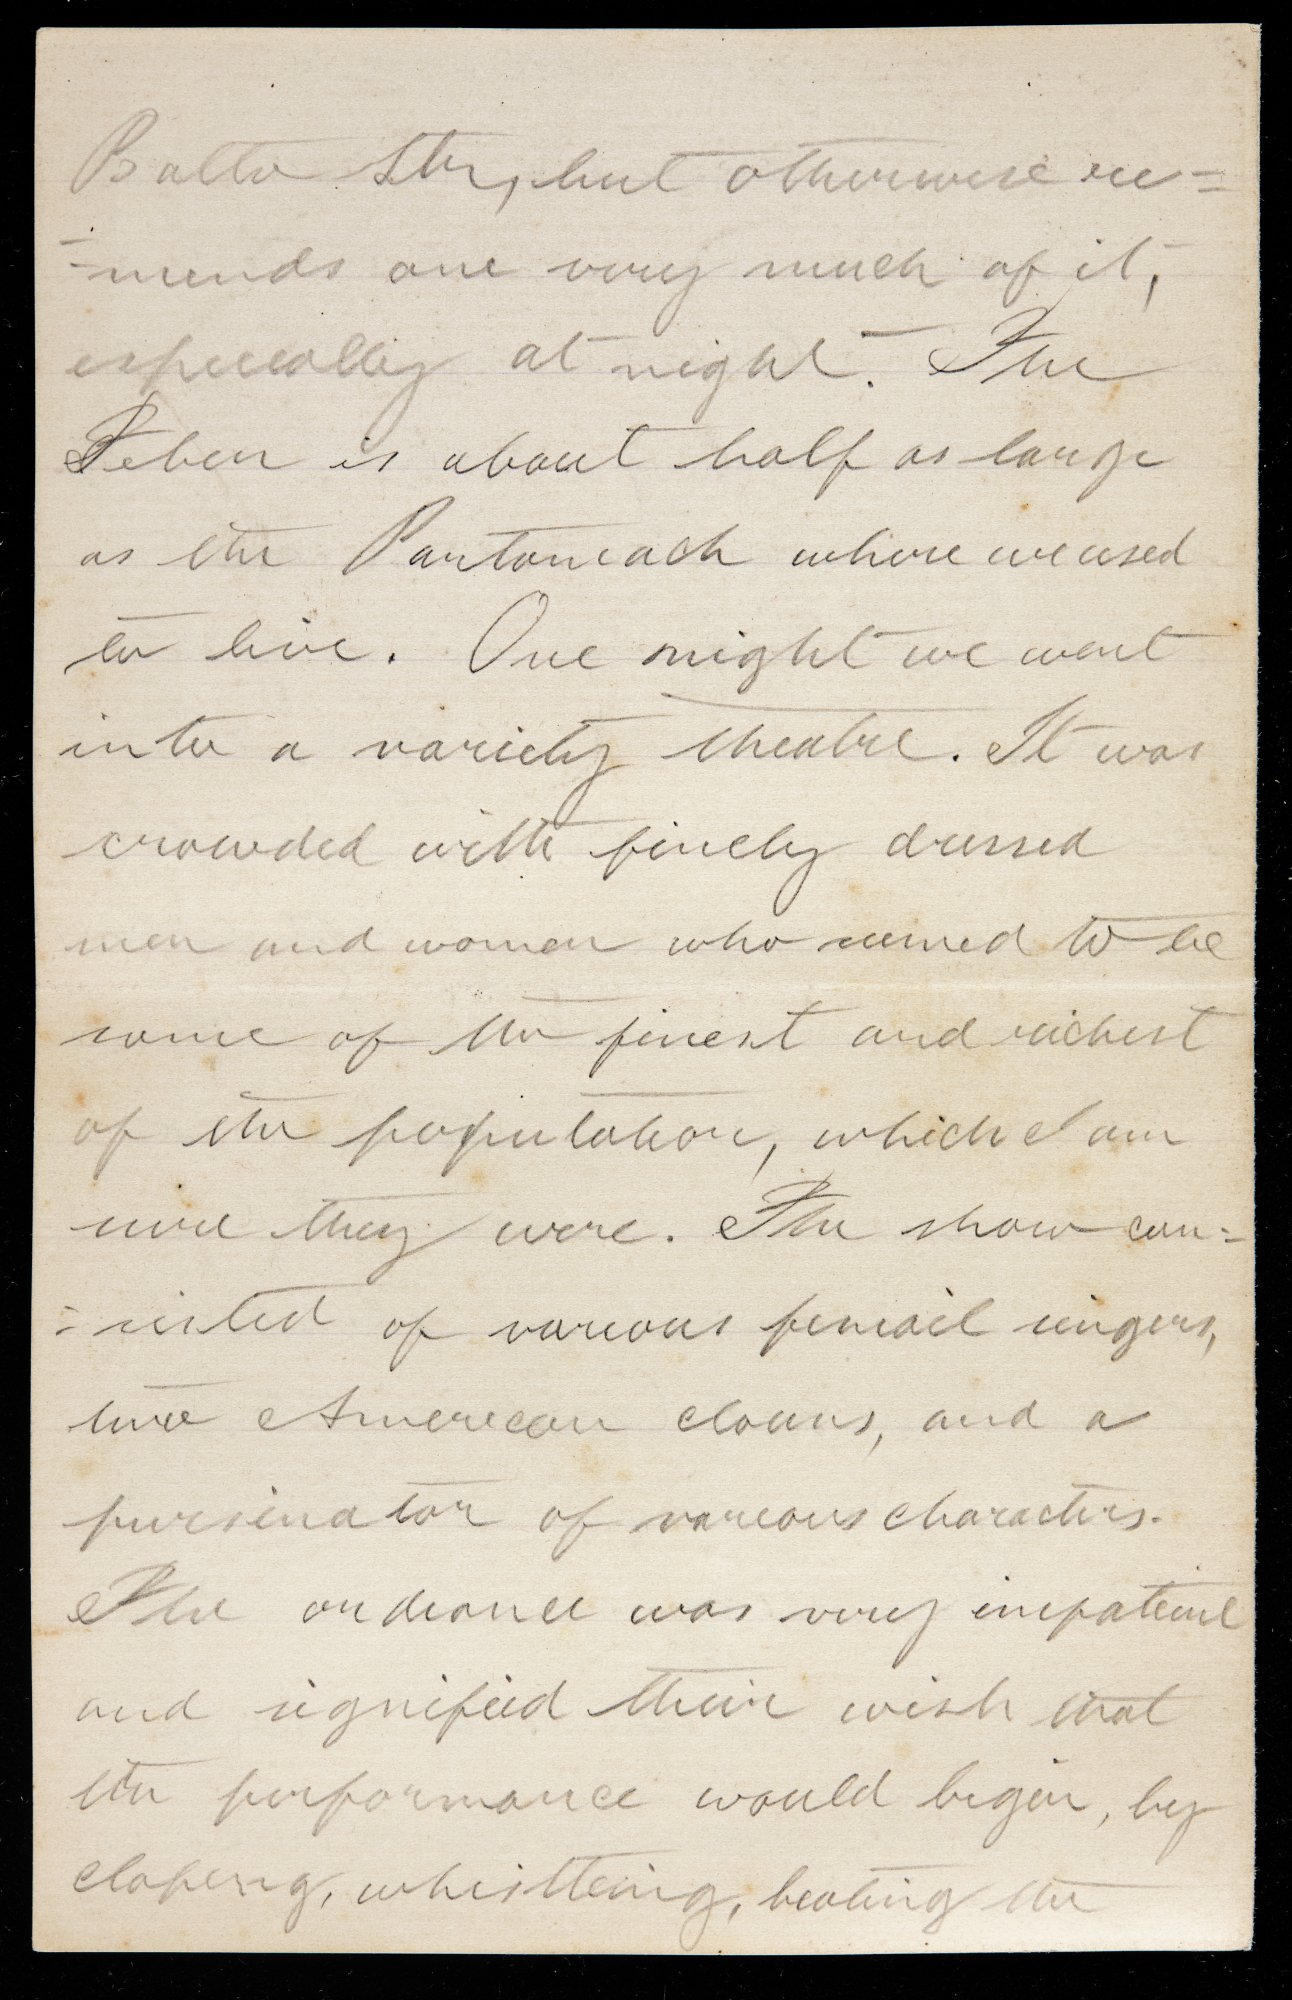 Balto Str, but otherwise re=
=minds one very much of it,
especially at night. The
Teber is about half as large
as the Pantomach where we used
to live. One night we went
into a variety theatre. It was
crowded with finely dressed
men and women who seemed to be
some of the finest and richest
of the population, which I am
sure they were. The show con=
=sisted of various femail singers,
two American clowns, and a
pursinator of various characters.
The ordeance was very impatient
and signified their wish that
the performance would begin, by
claping, whistleing, beating the